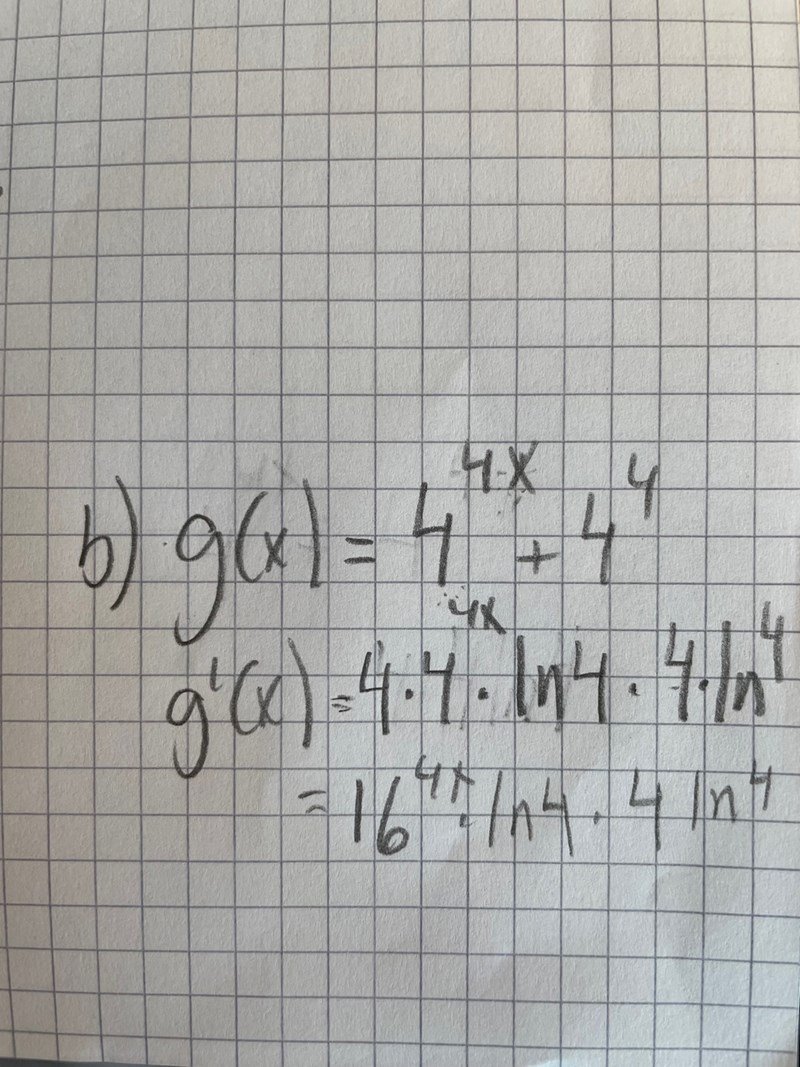 b) g(x) = 4^{4x} + 4^4
g'(x) = 4 · 4^{4x} · ln4 · 4 · ln^4
= 16^{4x} · ln4 · 4 ln^4